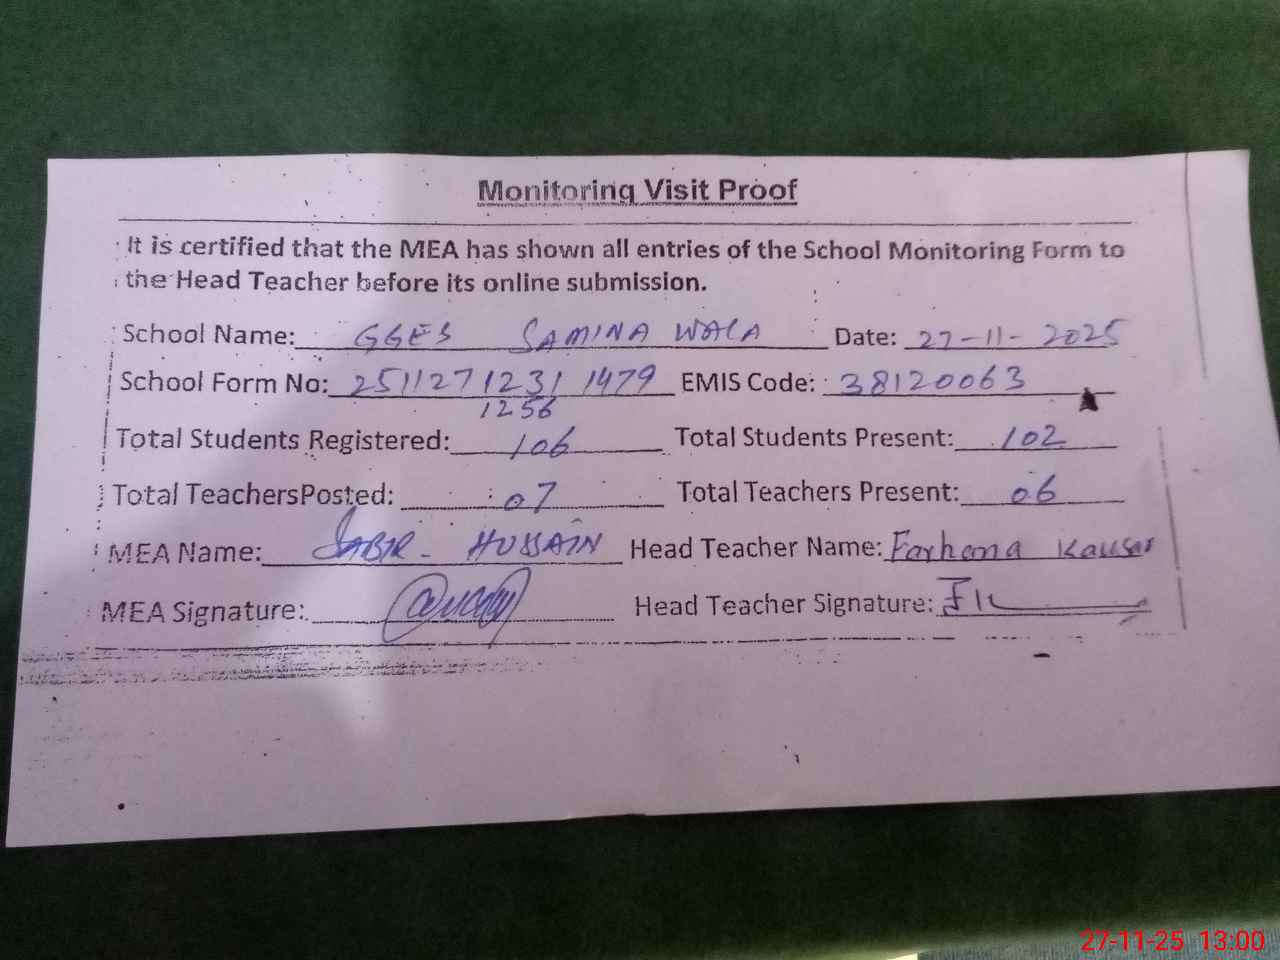 Monitoring Visit Proof
It is certified that the MEA has shown all entries of the School Monitoring Form to
the Head Teacher before its online submission.
School Name: GGES SAMINA WALA Date: 27-11-2025
School Form No: 251127 1231 1479 EMIS Code: 38120063
1256
Total Students Registered: 106 Total Students Present: 102
Total TeachersPosted: 07 Total Teachers Present: 06
MEA Name: SABIR - HUSSAIN Head Teacher Name: Farhana Kausar
MEA Signature: Head Teacher Signature: FK
27-11-25 13:00